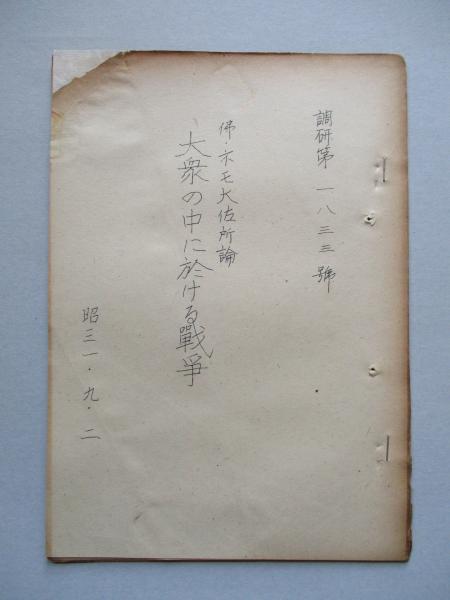 調研第一八三三號
佛・ネモ大佐所論
大衆の中に於ける戰爭
昭三一・九・二